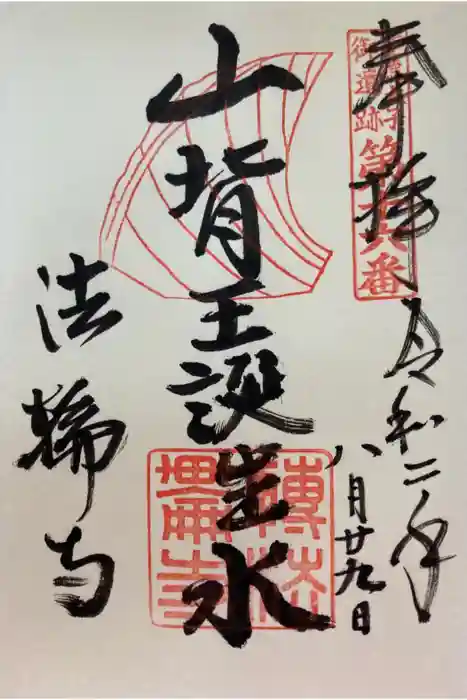 奉拝 令和二年
八月廿九日
聖徳太子
御遺跡
第十六番
山背王誕生水
法輪寺